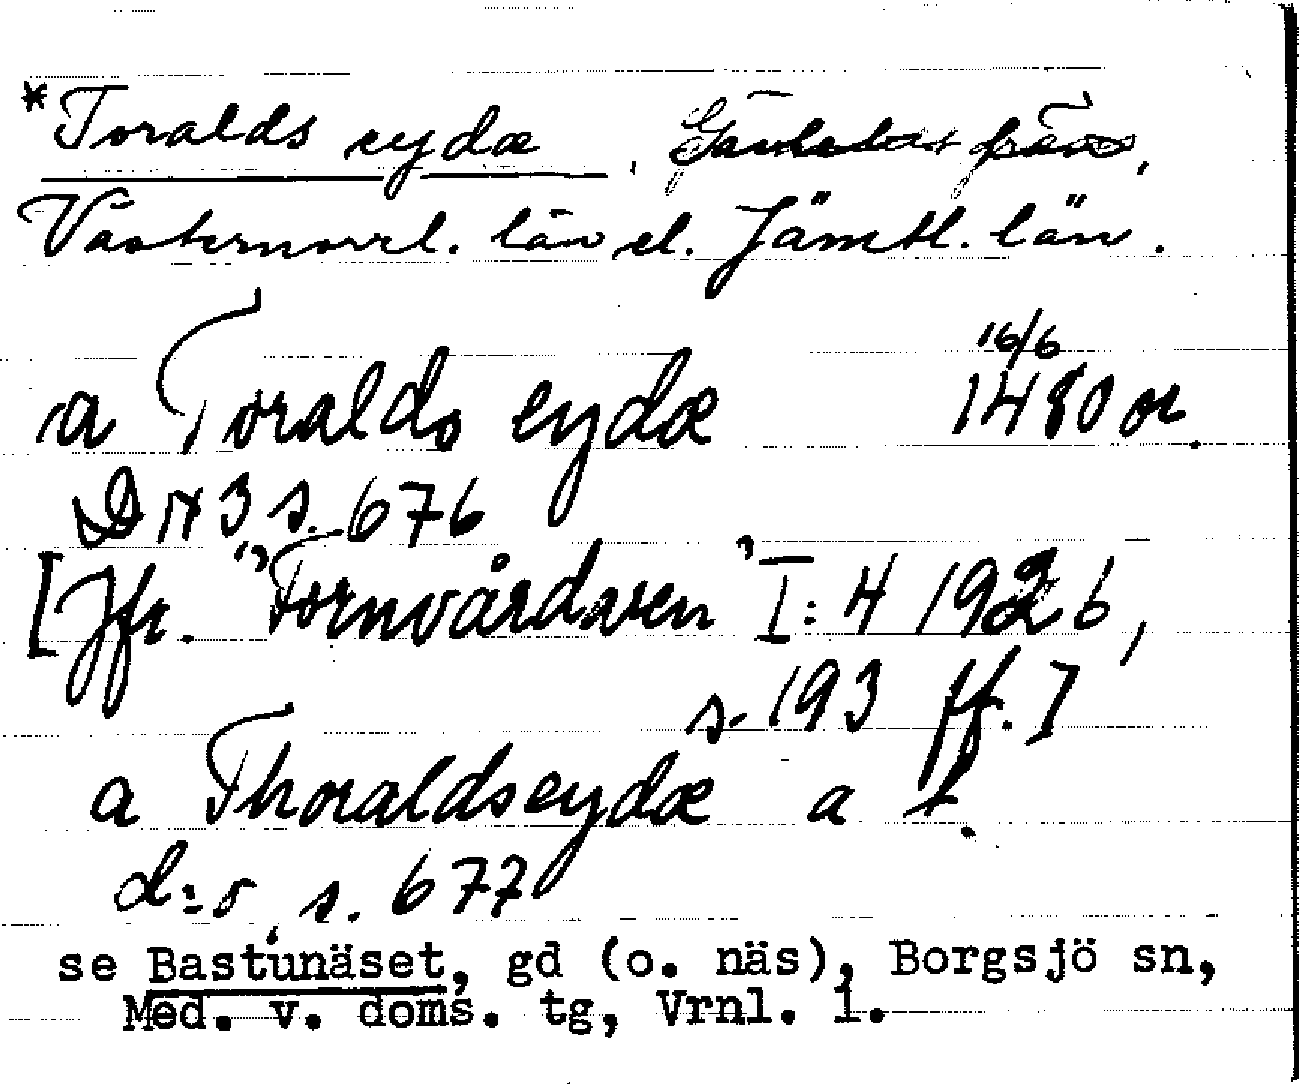 *Toralds eydæ, 
Västernorrl. län el. Jämtl. län.
a Toralds eydæ 16/6 1480 or.
DN 3 s. 676
[Jfr. "Fornvårdaren" I: 4 1926,
s. 193 ff.]
a Thoraldseydæ a t.
d:o s. 677
se Bastunäset, gd (o. näs), Borgsjö sn,
Med. v. doms. tg, Vrnl. l.